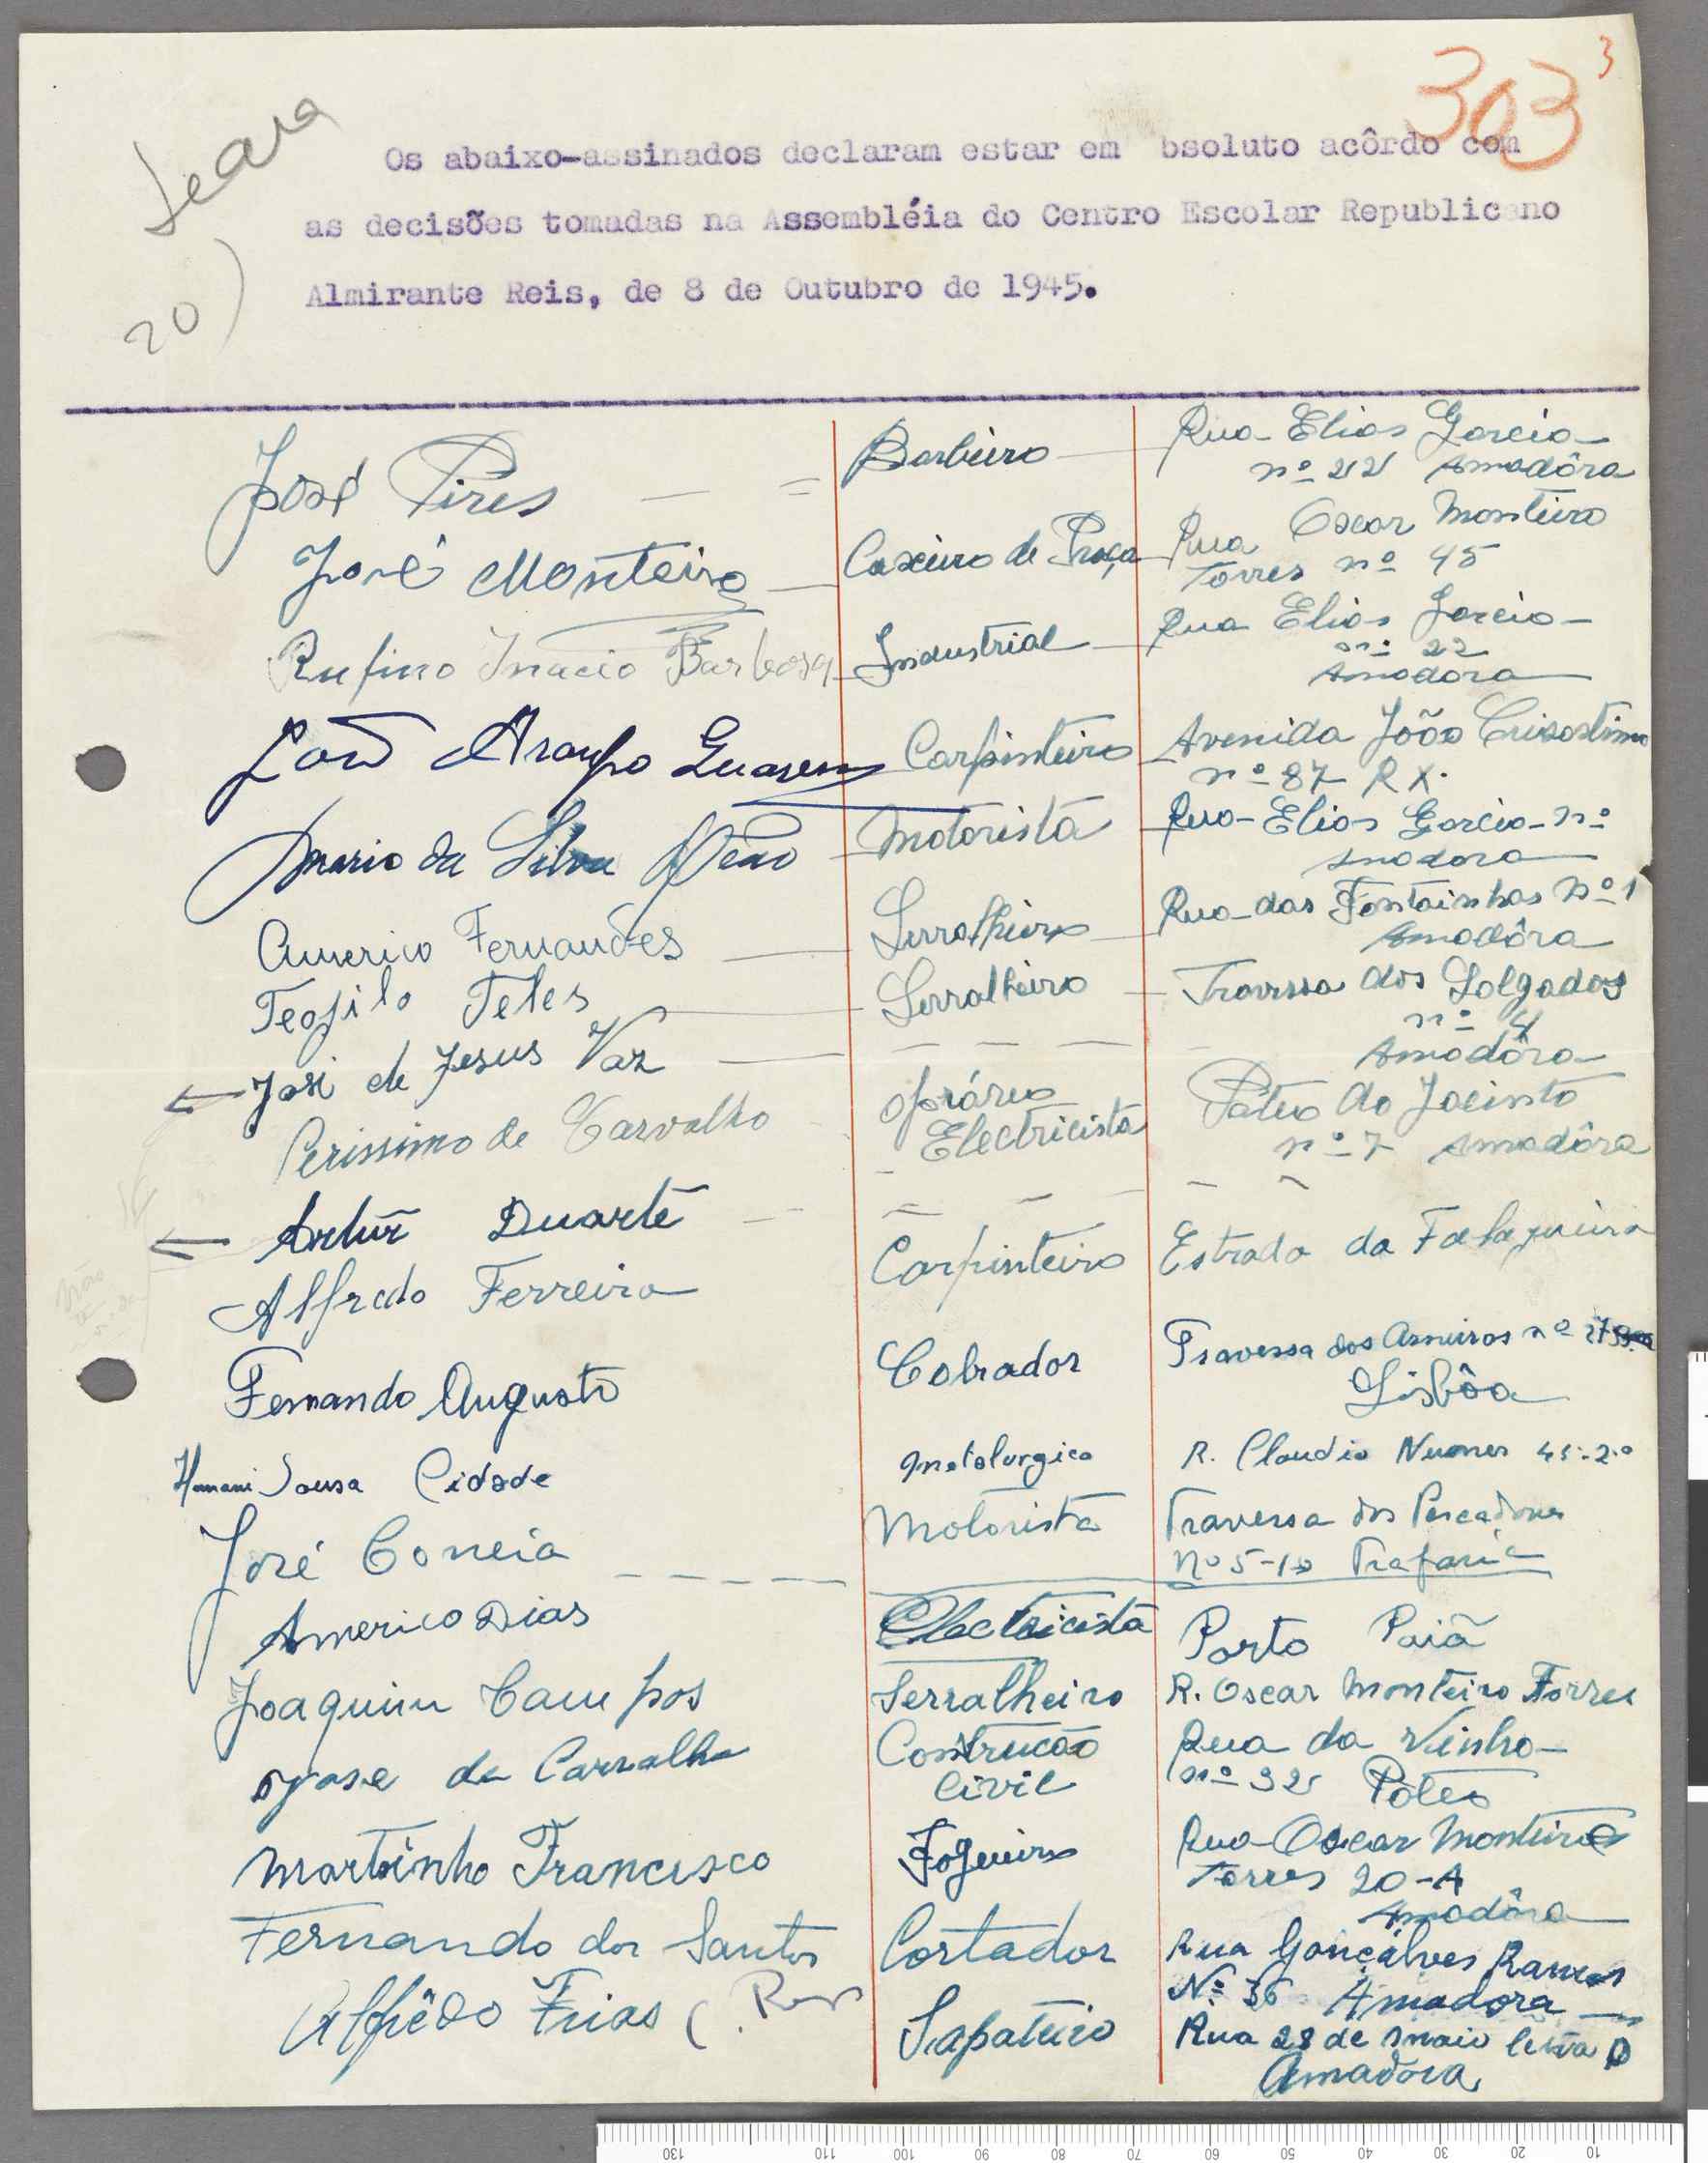 303
3
Seara
20)
Os abaixo-assinados declaram estar em bsoluto acôrdo com
as decisões tomadas na Assembléia do Centro Escolar Republicano
Almirante Reis, de 8 de Outubro de 1945.
José Pires Barbeiro Rua Elias Garcia
nº 22 Amadôra
José Monteiro Caxeiro de Praça Rua Oscar Monteiro
Torres nº 45
Rufino Inacio Barbosa Industrial Rua Elias Garcia
nº 22
Amadora
João Araujo Carpinteiro Avenida João Crisostimo
nº 87 R X.
Mario da Silva Motorista Rua Elias Garcia nº
Amadora
Americo Fernandes Serralheiro Rua das Fontainhas nº 1
Amadôra
Teofilo Teles Serralheiro Travessa dos Salgados
nº 4
Amadôra
José de Jesus Vaz
Perissimo de Carvalho Operário
Electricista Pateo do Jacinto
nº 7 Amadôra
Artur Duarte
Alfredo Ferreira Carpinteiro Estrada da Falagueira
Fernando Augusto Cobrador Travessa dos Arneiros nº 27
Lisbôa
Hernani Sousa Cidade Metalurgico R. Claudio Nunes 45-2º
José Correia Motorista Travessa dos Pescadores
nº 5-1º Trafaria
Americo Dias Electricista Porto Paiã
Joaquim Campos Serralheiro R. Oscar Monteiro Torres
José de Carvalho Construcão
Civil Rua da Vinha
nº 32 Páteo
Martinho Francisco Fogueiro Rua Oscar Monteiro
Torres 20-A
Amadôra
Fernando dos Santos Cortador Rua Gonçálves Ramos
Nº 36 Amadora
Alfrêdo Frias Sapateiro Rua 28 de Maio letra D
Amadora